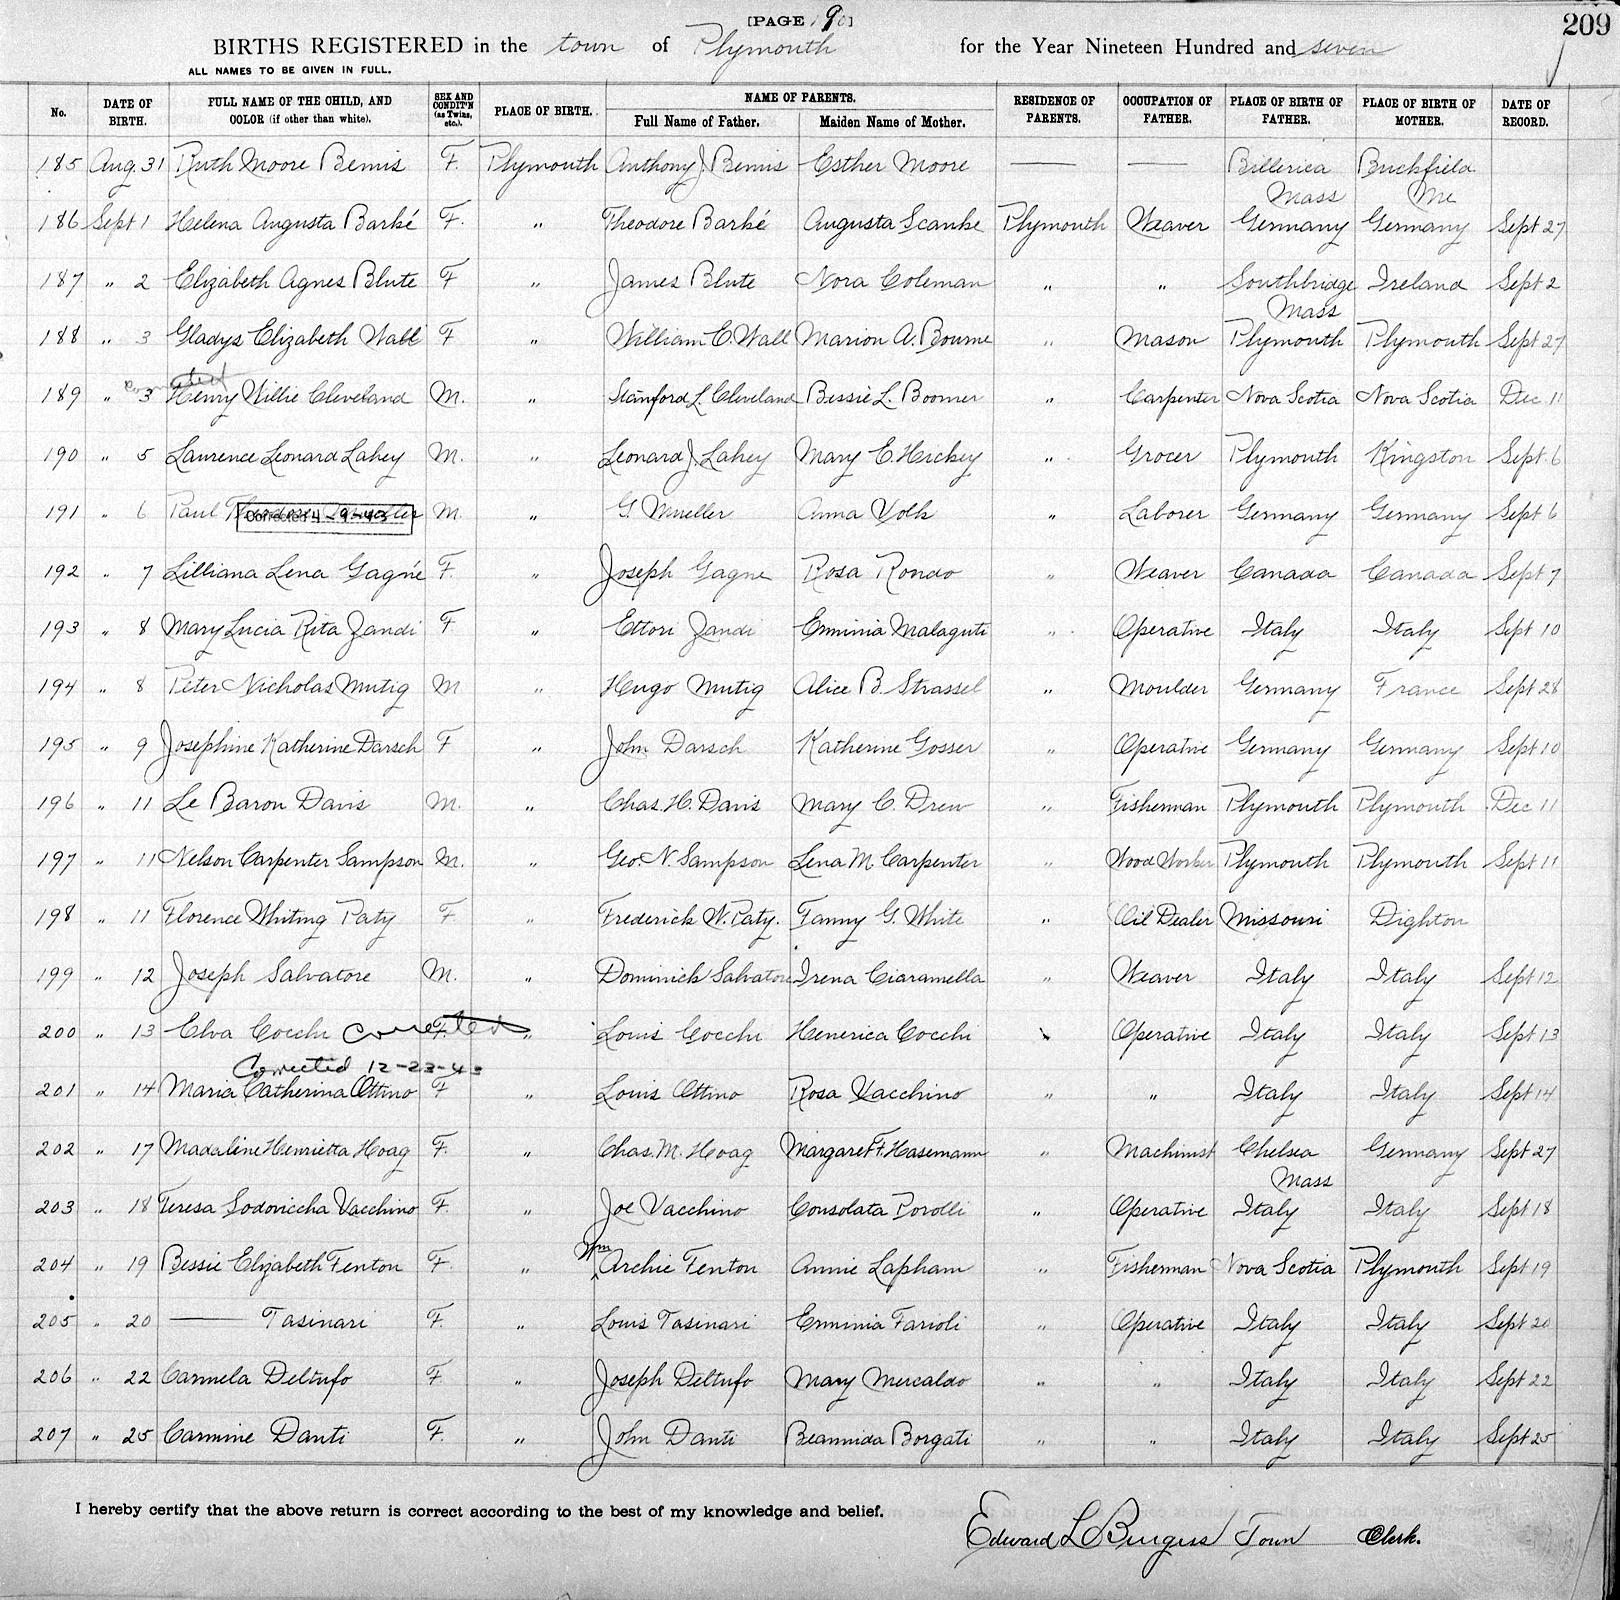 [PAGE 9]
209
BIRTHS REGISTERED in the town of Plymouth for the Year Nineteen Hundred and seven
ALL NAMES TO BE GIVEN IN FULL.
No. DATE OF BIRTH. FULL NAME OF THE CHILD, AND COLOR (if other than white). SEX AND CONDIT'N (as Twins, etc.). PLACE OF BIRTH. NAME OF PARENTS. Full Name of Father. Maiden Name of Mother. RESIDENCE OF PARENTS. OCCUPATION OF FATHER. PLACE OF BIRTH OF FATHER. PLACE OF BIRTH OF MOTHER. DATE OF RECORD.
185 Aug. 31 Ruth Moore Bemis F. Plymouth Anthony J. Bemis Esther Moore — — Billerica Mass Buckfield Me
186 Sept 1 Helena Augusta Barké F. " Theodore Barké Augusta Scanke Plymouth Weaver Germany Germany Sept 27
187 " 2 Elizabeth Agnes Blute F " James Blute Nora Coleman " " Southbridge Mass Ireland Sept 2
188 " 3 Gladys Elizabeth Wall F " William C. Wall Marion A. Bourne " Mason Plymouth Plymouth Sept 27
corrected
189 " 3 Henry Willie Cleveland M. " Stanford L. Cleveland Bessie L. Boomer " Carpenter Nova Scotia Nova Scotia Dec. 11
190 " 5 Laurence Leonard Lahey M. " Leonard J. Lahey Mary E. Hickey " Grocer Plymouth Kingston Sept. 6
191 " 6 Paul M. " G Mueller Anna Volk " Laborer Germany Germany Sept 6
Corrected 4-9-43
192 " 7 Lilliana Lena Gagné F. " Joseph Gagne Rosa Rondo " Weaver Canada Canada Sept 7
193 " 8 Mary Lucia Rita Zandi F. " Ettori Zandi Erminia Malaguti " Operative Italy Italy Sept 10
194 " 8 Peter Nicholas Mutig M " Hugo Mutig Alice B. Strassel " Moulder Germany France Sept 28
195 " 9 Josephine Katherine Darsch F " John Darsch Katherine Gosser " Operative Germany Germany Sept 10
196 " 11 Le Baron Davis M. " Chas. H. Davis Mary C. Drew " Fisherman Plymouth Plymouth Dec 11
197 " 11 Nelson Carpenter Sampson M. " Geo. N. Sampson Lena M. Carpenter " Wood Worker Plymouth Plymouth Sept 11
198 " 11 Florence Whiting Paty F " Frederick W. Paty. Fanny G. White " Oil Dealer Missouri Dighton
199 " 12 Joseph Salvatore M. " Dominick Salvatore Irena Ciaramella " Weaver Italy Italy Sept 12
200 " 13 Elva Cocchi corrected F. " Louis Cocchi Henerica Cocchi " Operative Italy Italy Sept 13
Corrected 12-23-43
201 " 14 Maria Catherina Ottino F " Louis Ottino Rosa Vacchino " " Italy Italy Sept 14
202 " 17 Madaline Henrietta Hoag F. " Chas. M. Hoag Margaret F. Hasemann " Machinist Chelsea Mass Germany Sept 27
203 " 18 Teresa Lodoviccha Vacchino F. " Joe Vacchino Consolata Porolli " Operative Italy Italy Sept 18
204 " 19 Bessie Elizabeth Fenton F. " Wm Archie Fenton Annie Lapham " Fisherman Nova Scotia Plymouth Sept 19
205 " 20 — Tasinari F. " Louis Tasinari Erminia Farioli " Operative Italy Italy Sept 20
206 " 22 Carmela Deltufo F. " Joseph Deltufo Mary Mercaldo " " Italy Italy Sept 22
207 " 25 Carmine Danti F. " John Danti Beannida Borgati " " Italy Italy Sept 25
I hereby certify that the above return is correct according to the best of my knowledge and belief.
Edward L Burgess Town Clerk.